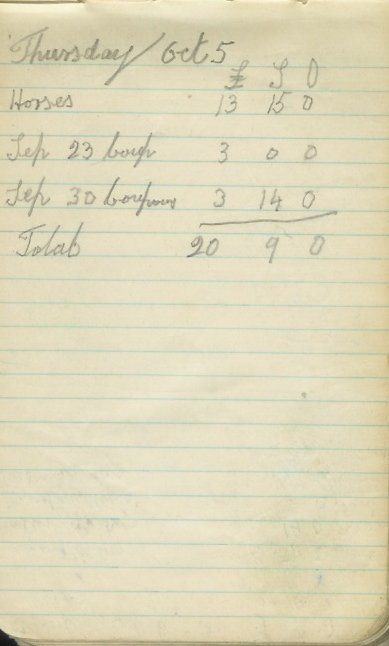 Thursday / Oct 5
£ S D
Horses 13 15 0
Sep 23 coup 3 0 0
Sep 30 3 14 0
Total 20 9 0